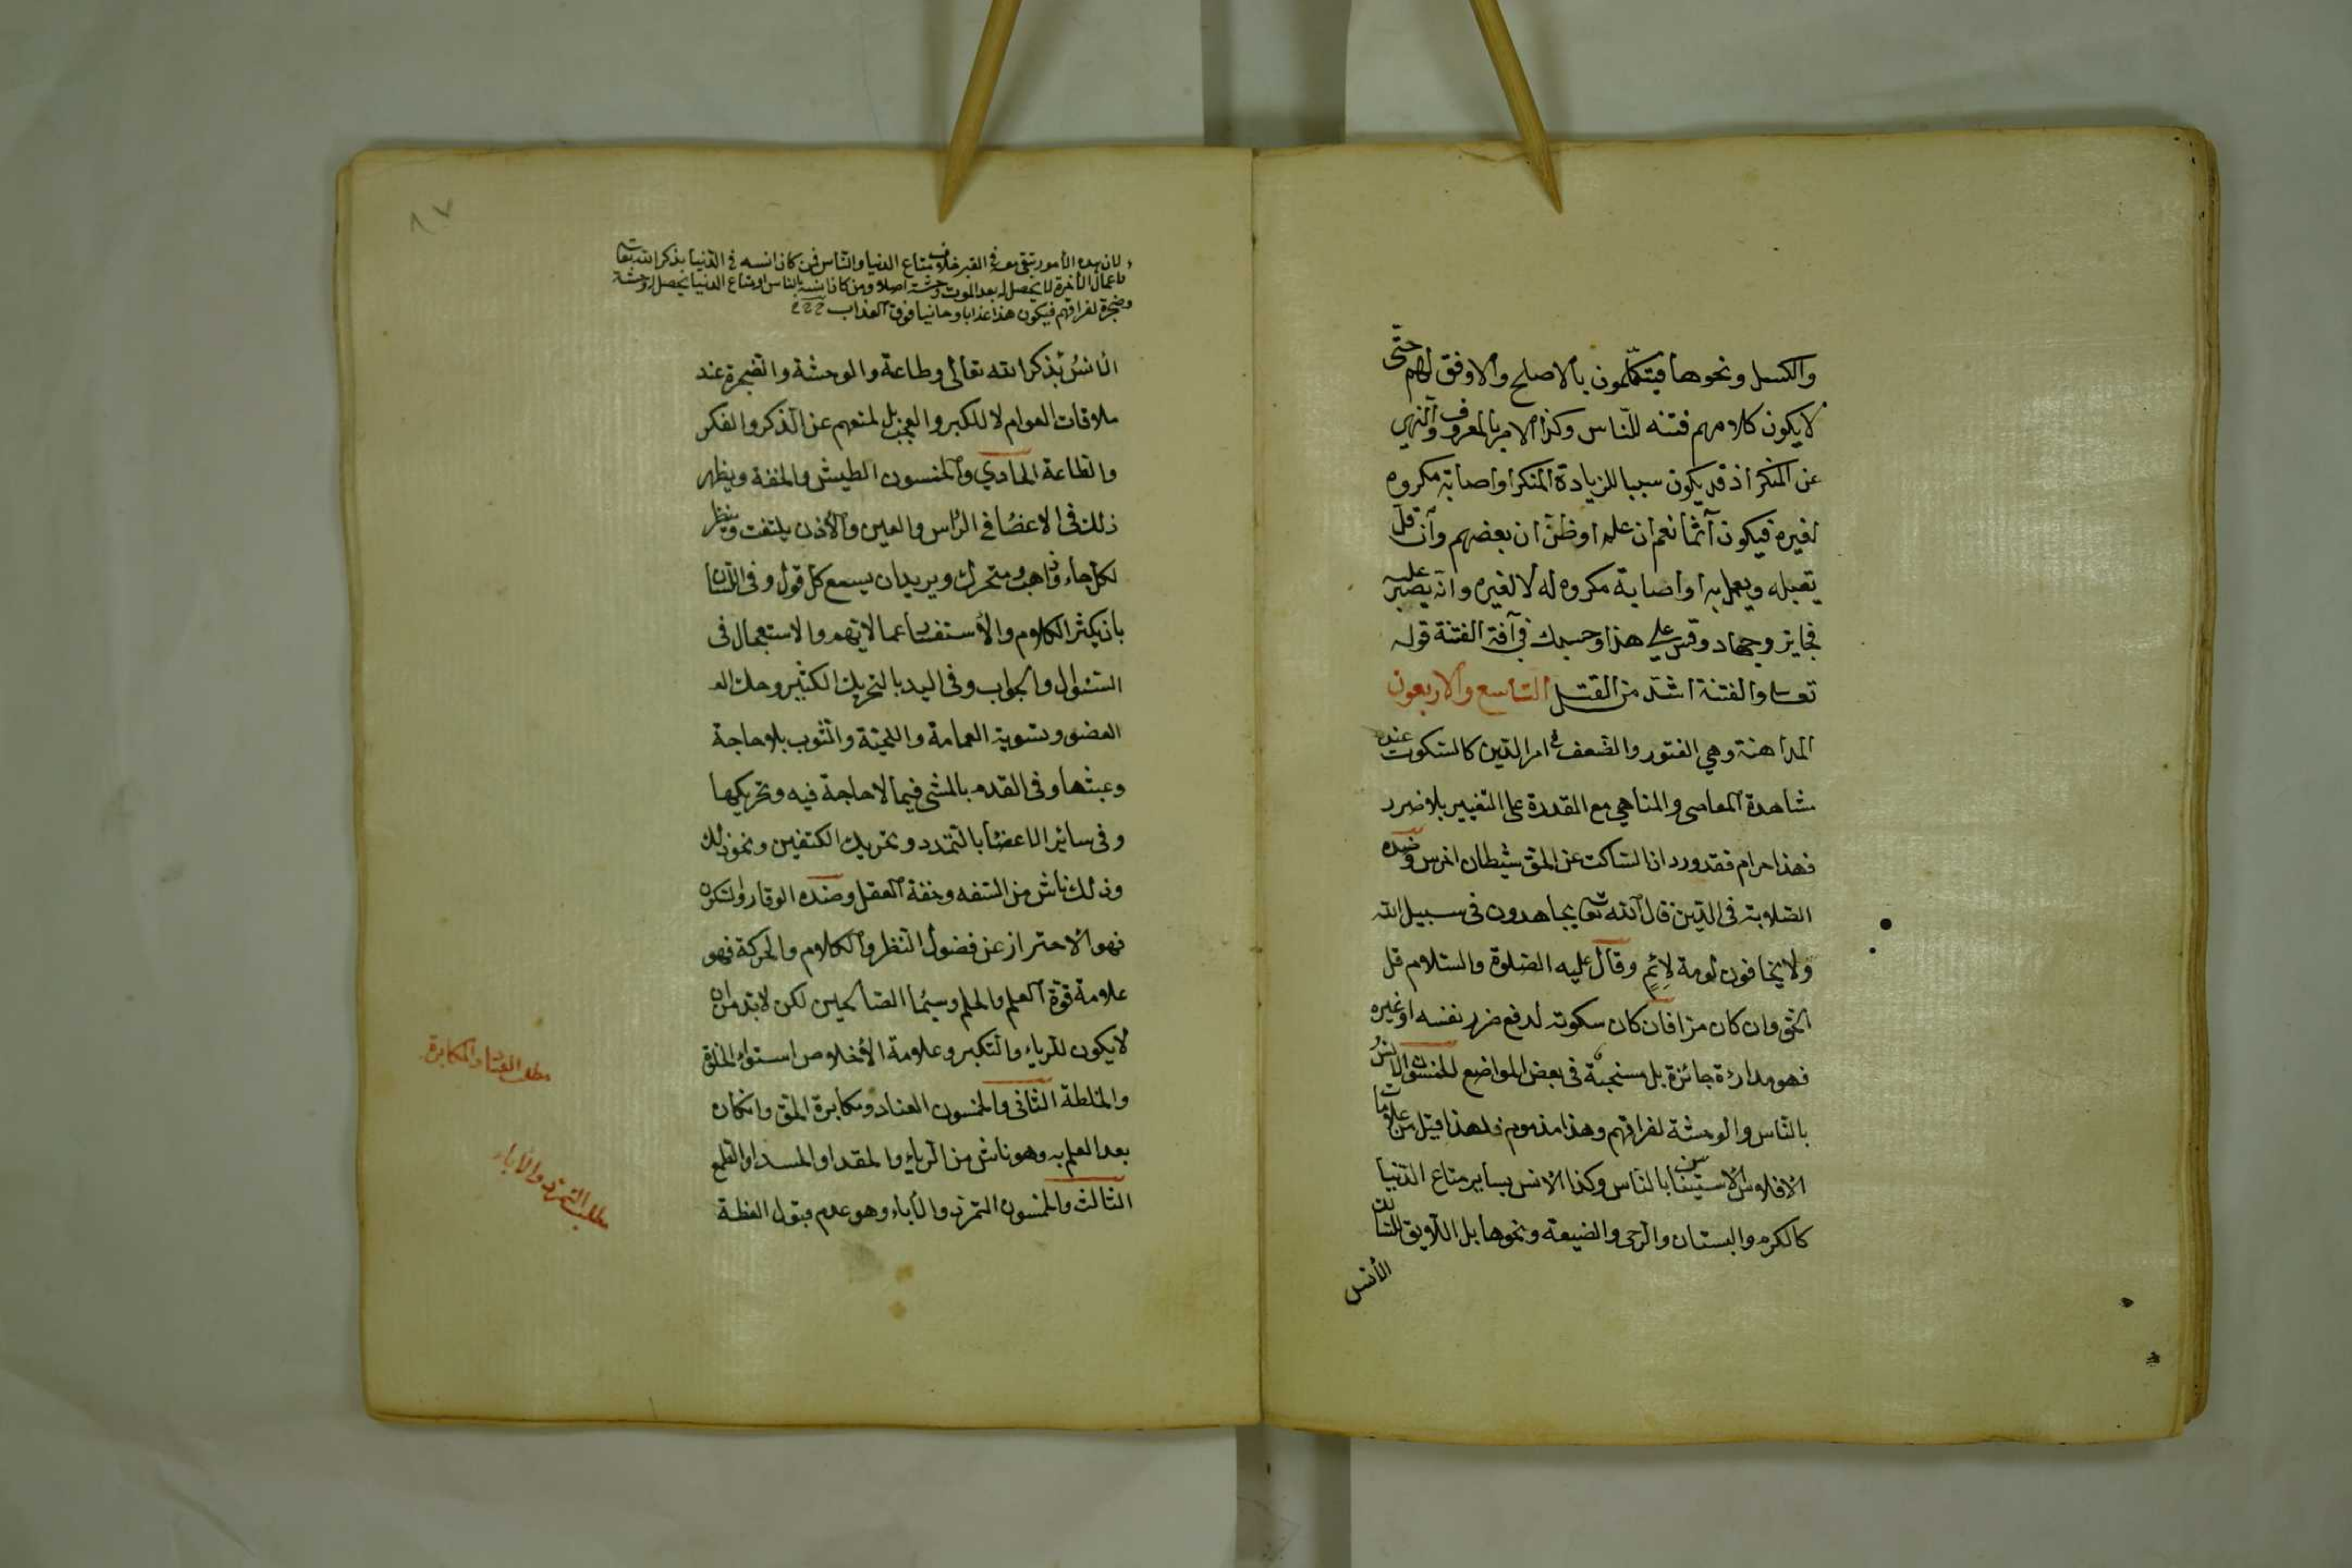 والكسل ونحوها فيتكلمون بالاصلح والاوفق لهم حتى
لا يكون كلامهم فتنه للناس وكذا الامر بالمعروف والنهي
عن المنكر اذ قد يكون سببا لزيادة المنكر او اصابة مكروه
لغيره فيكون آثما نعم ان علم او ظن ان بعضهم وان قل
يقبله ويعمل به او اصابة مكروه له لا لغيره وانه يصبر عليه
فجايز وجهاد وقس على هذا وحسبك في آفة الفتنة قوله
تعا والفتنة اشد من القتل التاسع والاربعون
المداهنة وهي الفتور والضعف في امر الدين كالسكوت عند
مشاهدة المعاصى والمناهي مع القدرة على التغيير بلا ضرر
فهذا حرام فقد ورد ان الساكت عن الحق شيطان اخرس وضده
الصلابة فى الدين قال الله تعا يجاهدون فى سبيل الله
ولا يخافون لومة لائم وقال عليه الصلوة والسلام قل
الحق وان كان مرا فان كان سكوته لدفع ضرر نفسه او غيره
فهو مداراة جائزة بل مستحبة فى بعض المواضع الخمسون الانس
بالناس والوحشة لفراقهم وهذا مذموم فلهذا قيل من علامات
الافلاس الاستيناس بالناس وكذا الانس بساير متاع الدنيا
كالكرم والبستان والرحى والضيعة ونحوها بل اللايق للسالك
الأنس
لان هذه الأمور تبقى معه فى القبر خلاف متاع الدنيا والناس فمن كان انسه فى الدنيا بذكر الله تعا
واعمال الآخرة لا يحصل له بعد الموت وحشة اصلا ومن كان انسه بالناس او متاع الدنيا يحصل له وحشة
وضجرة لفراقهم فيكون هذا عذابا روحانيا فوق العذاب
الانس بذكر الله تعالى وطاعة والوحشة والضجرة عند
ملاقات العوام لا للكبر والعجب بل لمنعهم عن الذكر والفكر
والطاعة الحادي والخمسون الطيش والخفة ويظهر
ذلك فى الاعضا فى الراس والعين والأذن يلتفت وينظر
لكل جاء وذاهب ومتحرك ويريد ان يسمع كل قول وفى اللسان
بان يكثر الكلام والاستفسار عما لا يهم والاستعجال فى
السئوال والجواب وفى اليد بالتحريك الكثير وحك
العضو وتسوية العمامة واللحية والثوب بلا حاجة
وعبثها وفى القدم بالمشى فيما لا حاجة فيه وتحريكها
وفى سائر الاعضا بالتمدد وتحريك الكتفين ونحو ذلك
وذلك ناش من السفه وخفة العقل وضده الوقار والسكون
فهو الاحتراز عن فضول النظر والكلام والحركة فهو
علامة قوة العلم والحلم وسيما الصالحين لكن لا بد من ان
لا يكون للرياء والتكبر وعلامة الأخلاص استواء الخلوة
والخلطة الثانى والخمسون العناد ومكابرة الحق وانكاره
بعد العلم به وهو ناش من الرياء والحقد او الحسد او الطمع
الثالث والخمسون التمرد والاباء وهو عدم قبول العظة
مطلب العناد والمكابرة
مطلب التمرد والاباء